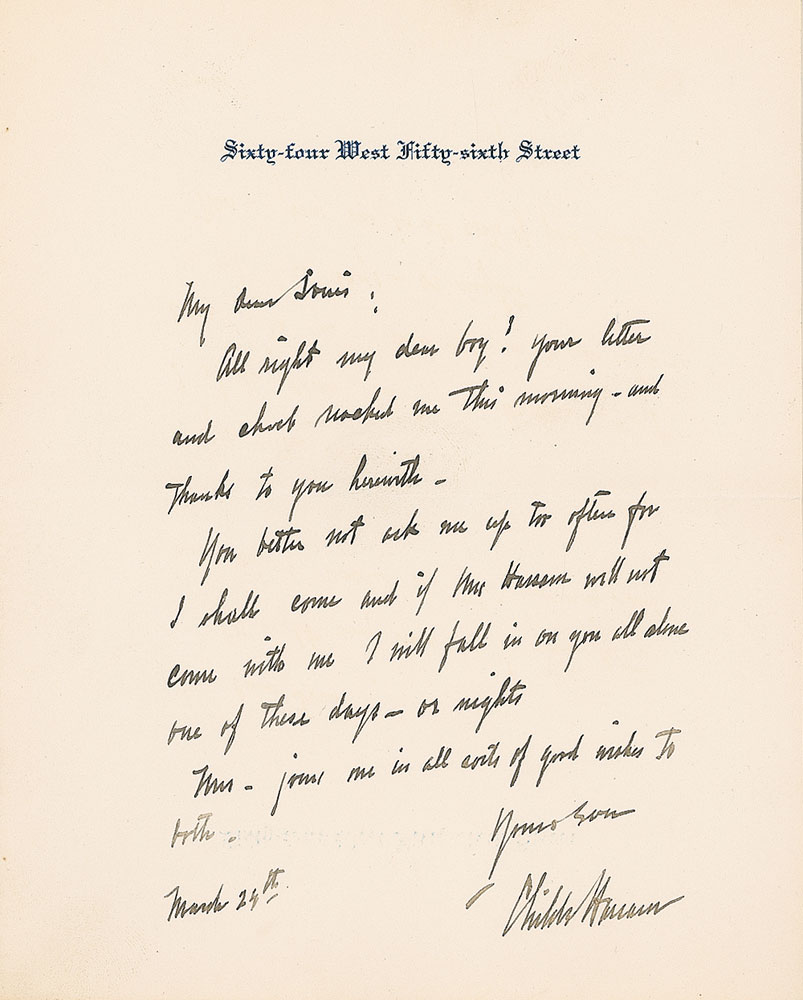 Sixty-four West Fifty-sixth Street
My dear Louis:
All right my dear boy! your letter
and check reached me this morning - and
thanks to you herewith -
You better not ask me up too often for
I shall come and if Mrs Hassam will not
come with me I will fall in on you all alone
one of these days - or nights
Mrs - joins me in all sorts of good wishes to
both -
Yours
Childe Hassam
March 24th